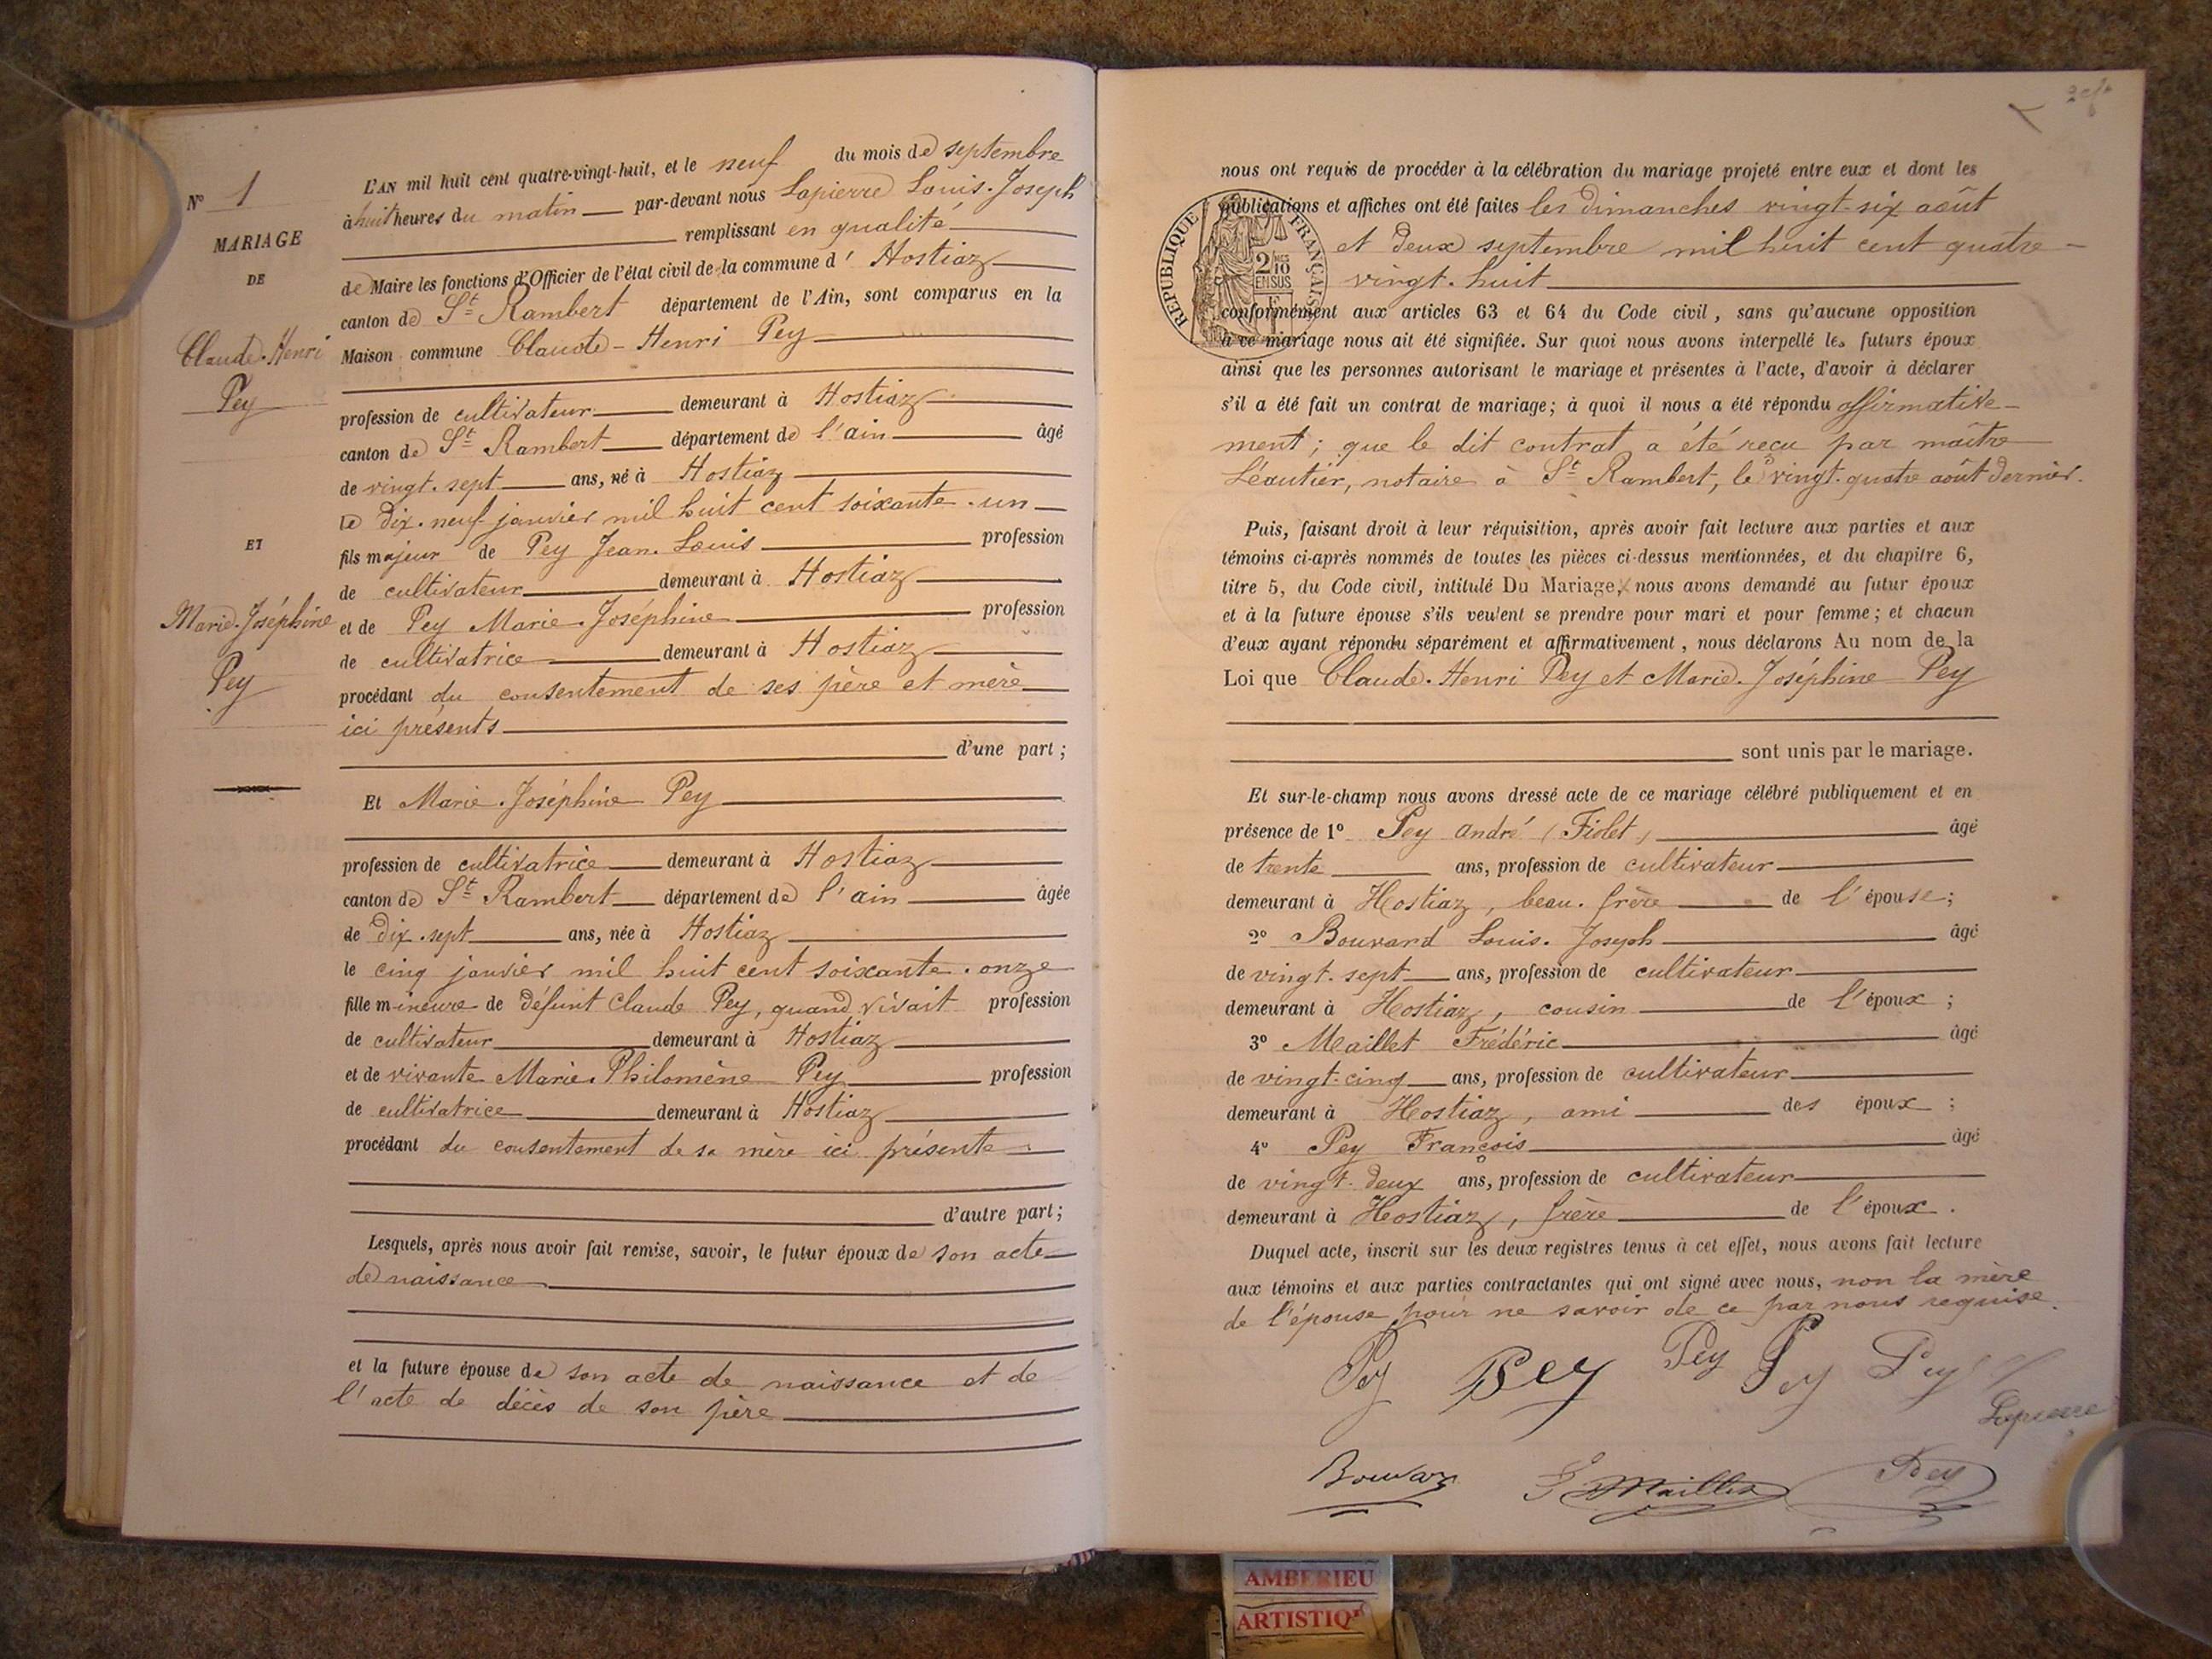 N° 1
MARIAGE
DE
Claude-Henri
Pey
ET
Marie-Joséphine
Pey
L'AN mil huit cent quatre-vingt-huit, et le neuf du mois de septembre
à huit heures du matin par-devant nous Lapierre Louis-Joseph
remplissant en qualité
de Maire les fonctions d'Officier de l'état civil de la commune d' Hostiaz
canton de St Rambert département de l'Ain, sont comparus en la
Maison commune Claude-Henri Pey
profession de cultivateur demeurant à Hostiaz
canton de St Rambert département de l'ain âgé
de vingt-sept ans, né à Hostiaz
le dix-neuf janvier mil huit cent soixante-un
fils majeur de Pey Jean-Louis profession
de cultivateur demeurant à Hostiaz
et de Pey Marie-Joséphine profession
de cultivatrice demeurant à Hostiaz
procédant du consentement de ses père et mère
ici présents
d'une part;
Et Marie-Joséphine Pey
profession de cultivatrice demeurant à Hostiaz
canton de St Rambert département de l'ain âgée
de dix-sept ans, née à Hostiaz
le cinq janvier mil huit cent soixante-onze
fille mineure de défunt Claude Pey, quand vivait profession
de cultivateur demeurant à Hostiaz
et de vivante Marie-Philomène Pey profession
de cultivatrice demeurant à Hostiaz
procédant du consentement de sa mère ici présente
d'autre part;
Lesquels, après nous avoir fait remise, savoir, le futur époux de son acte
de naissance
et la future épouse de son acte de naissance et de
l'acte de décès de son père
nous ont requis de procéder à la célébration du mariage projeté entre eux et dont les
publications et affiches ont été faites les dimanches vingt-six août
et deux septembre mil huit cent quatre-
vingt-huit
RÉPUBLIQUE FRANÇAISE
2/10 EN SUS
conformément aux articles 63 et 64 du Code civil, sans qu'aucune opposition
à ce mariage nous ait été signifiée. Sur quoi nous avons interpellé les futurs époux
ainsi que les personnes autorisant le mariage et présentes à l'acte, d'avoir à déclarer
s'il a été fait un contrat de mariage; à quoi il nous a été répondu affirmative-
ment; que le dit contrat a été reçu par maître
Léautier, notaire à St Rambert, le vingt-quatre août dernier.
Puis, faisant droit à leur réquisition, après avoir fait lecture aux parties et aux
témoins ci-après nommés de toutes les pièces ci-dessus mentionnées, et du chapitre 6,
titre 5, du Code civil, intitulé Du Mariage, nous avons demandé au futur époux
et à la future épouse s'ils veulent se prendre pour mari et pour femme; et chacun
d'eux ayant répondu séparément et affirmativement, nous déclarons Au nom de la
Loi que Claude-Henri Pey et Marie-Joséphine Pey
sont unis par le mariage.
Et sur-le-champ nous avons dressé acte de ce mariage célébré publiquement et en
présence de 1° Pey André (Fiolet) âgé
de trente ans, profession de cultivateur
demeurant à Hostiaz, beau-frère de l'épouse;
2° Bouvard Louis-Joseph âgé
de vingt-sept ans, profession de cultivateur
demeurant à Hostiaz, cousin de l'époux;
3° Maillet Frédéric âgé
de vingt-cinq ans, profession de cultivateur
demeurant à Hostiaz, ami des époux;
4° Pey François âgé
de vingt-deux ans, profession de cultivateur
demeurant à Hostiaz, frère de l'époux.
Duquel acte, inscrit sur les deux registres tenus à cet effet, nous avons fait lecture
aux témoins et aux parties contractantes qui ont signé avec nous, non la mère
de l'épouse pour ne savoir de ce par nous requise.
Pey Pey Pey Pey Pey
Lapierre
Bouvard Maillet Pey
AMBERIEU
ARTISTIQ